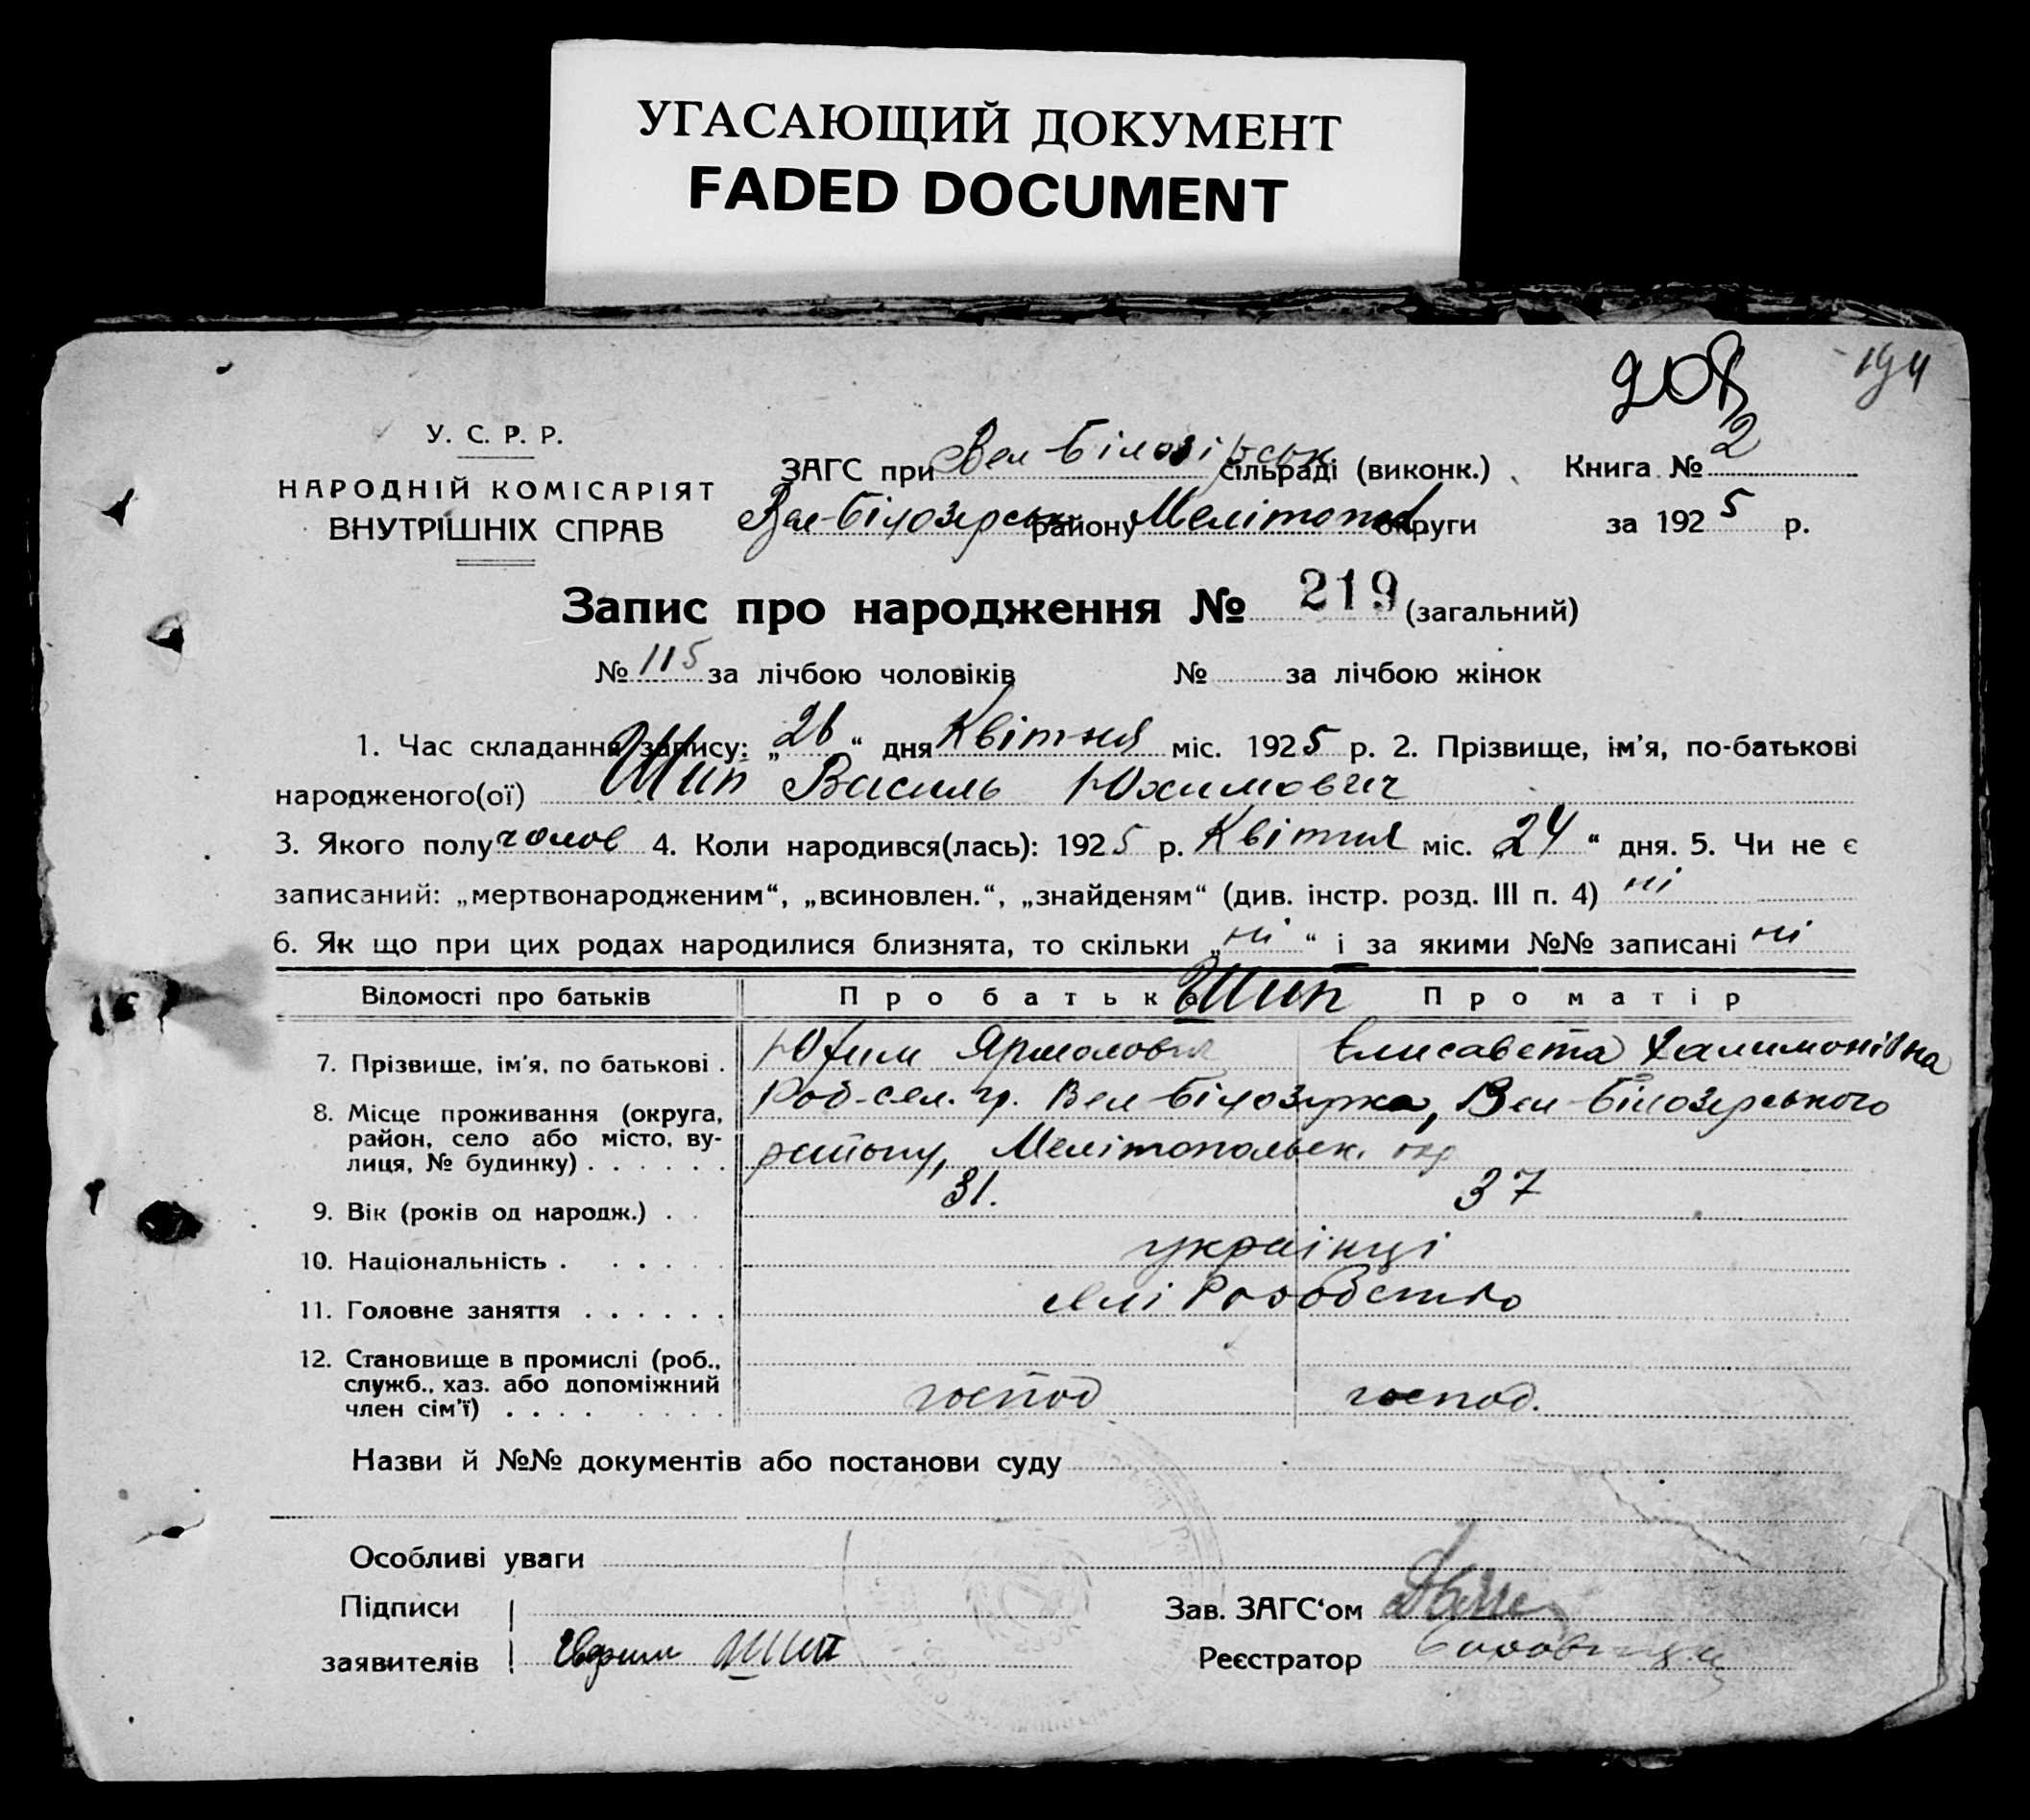 УГАСАЮЩИЙ ДОКУМЕНТ
FADED DOCUMENT
208
194
У. С. Р. Р.
НАРОДНІЙ КОМІСАРІЯТ
ВНУТРІШНІХ СПРАВ
ЗАГС при Вел Білозірськ сільраді (виконк.) Книга № 2
Вел-Білозерськ району Мелітопол округи за 1925 р.
Запис про народження № 219 (загальний)
№ 115 за лічбою чоловіків № за лічбою жінок
1. Час складання запису: „26“ дня Квітня міс. 1925 р. 2. Прізвище, ім'я, по-батькові
народженого(ої) Шип Василь Юхимович
3. Якого полу чолов 4. Коли народився(лась): 1925 р. Квітня міс. „24“ дня. 5. Чи не є
записаний: „мертвонародженим“, „всиновлен.“, „знайденям“ (див. інстр. розд. III п. 4) ні
6. Як що при цих родах народилися близнята, то скільки „ні“ і за якими №№ записані ні
Відомості про батьків Про батька Шип Про матір
7. Прізвище, ім'я, по батькові . Юхим Ярмолович Елисавета Халимонівна
8. Місце проживання (округа, Роб-сел. гр. Вел Білозерка, Вел-Білозерського
район, село або місто, ву-
лиця, № будинку) . . . . . . району, Мелітопольськ. окр
9. Вік (років од народж.) . . 31. 37
10. Національність . . . . . . українці
11. Головне заняття . . . . . . хліборобство
12. Становище в промислі (роб.,
служб., хаз. або допоміжний
член сім'ї) . . . . господ господ.
Назви й №№ документів або постанови суду
Особливі уваги
Підписи Зав. ЗАГС‘ом
заявителів Евфим Шип Реєстратор